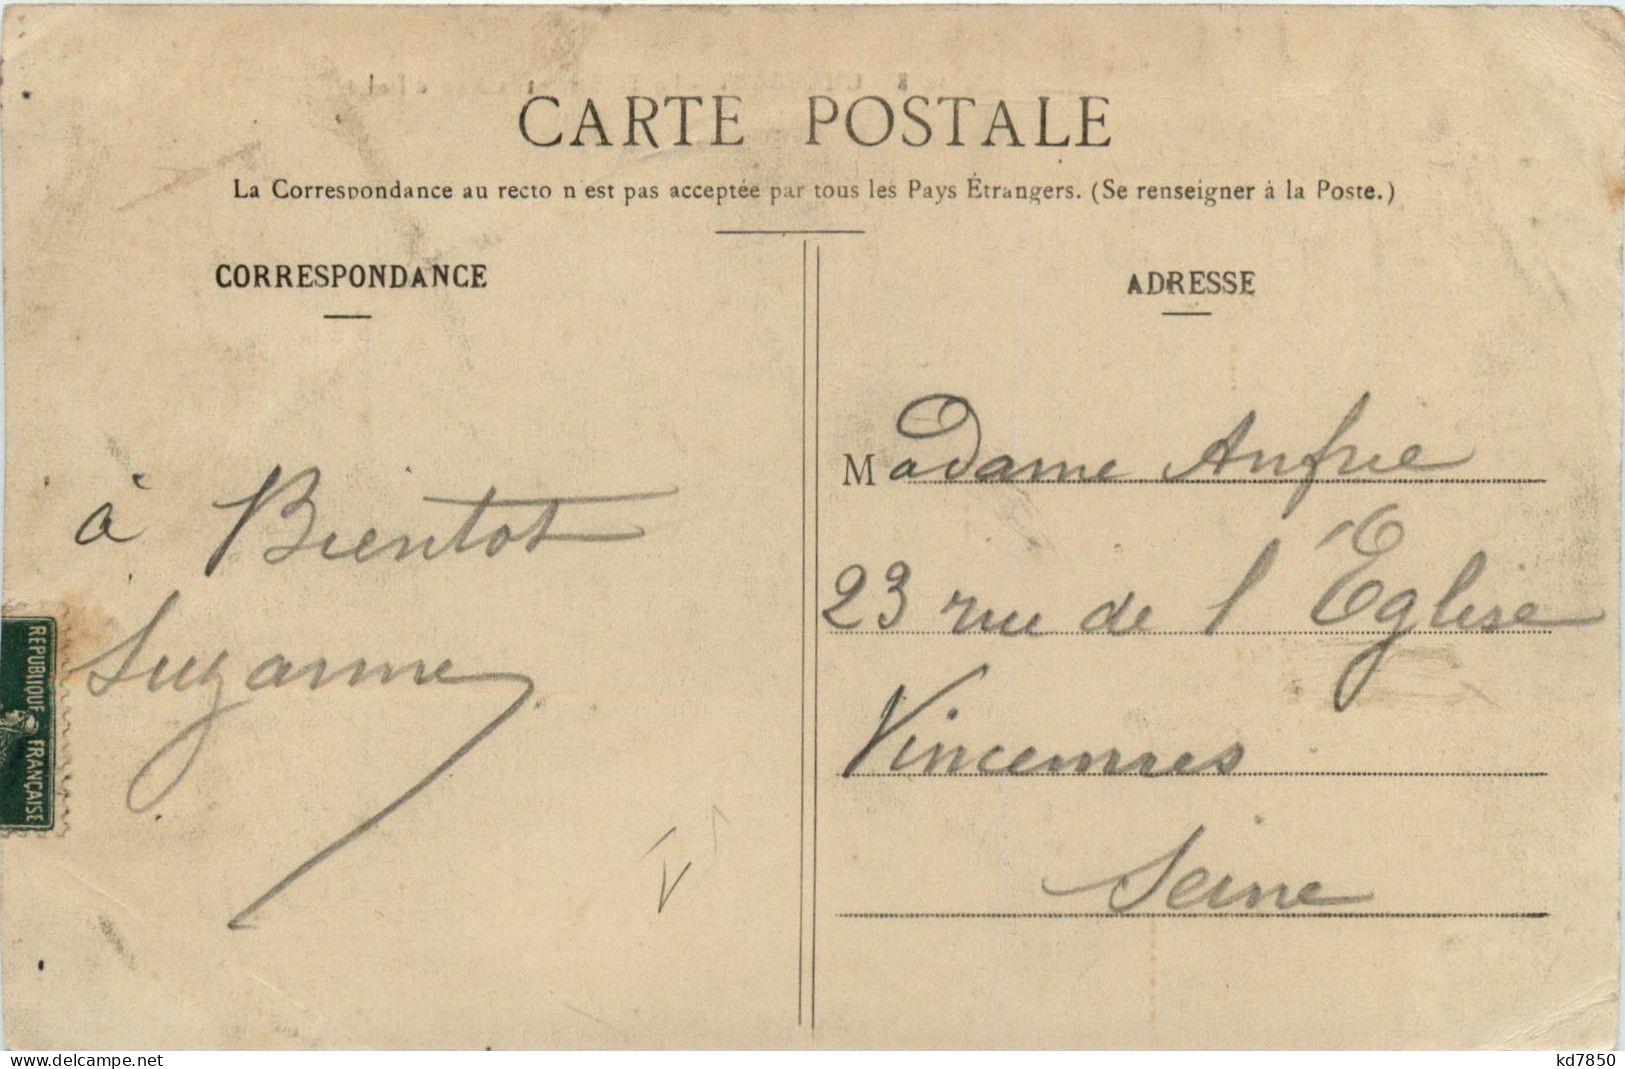 CARTE POSTALE
La Correspondance au recto n'est pas acceptée par tous les Pays Étrangers. (Se renseigner à la Poste.)
CORRESPONDANCE
à Bientot
Suzanne
REPUBLIQUE FRANÇAISE
ADRESSE
Madame Aufrie
23 rue de l'Église
Vincennes
Seine
www.delcampe.net
kd7850